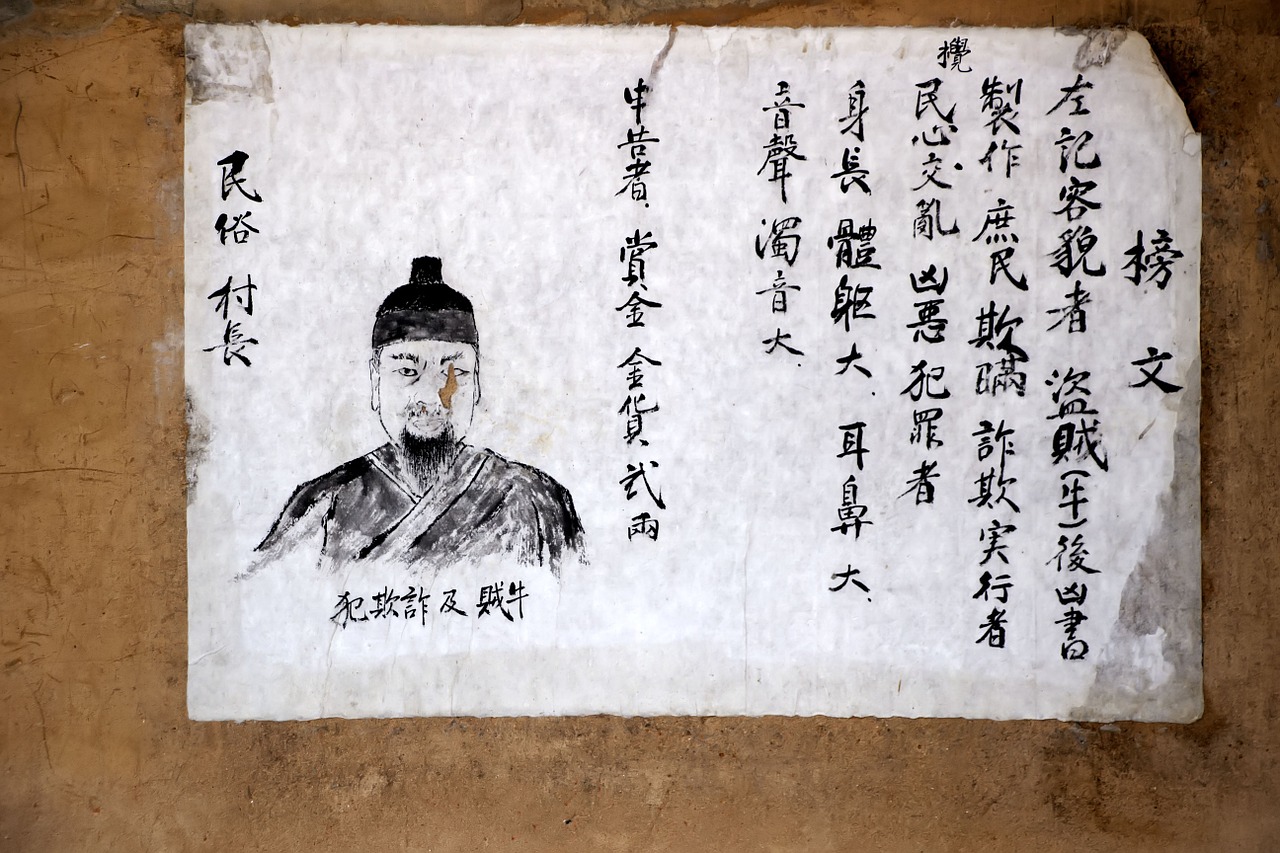 榜文
左記容貌者 盜賊(牛)後凶書
製作 庶民 欺瞞 詐欺実行者
攪
民心交亂 凶惡 犯罪者
身長 體軀大. 耳鼻大.
音聲 濁音大.
申告者. 賞金 金貨 弍兩
犯欺詐及賊牛
民俗村長